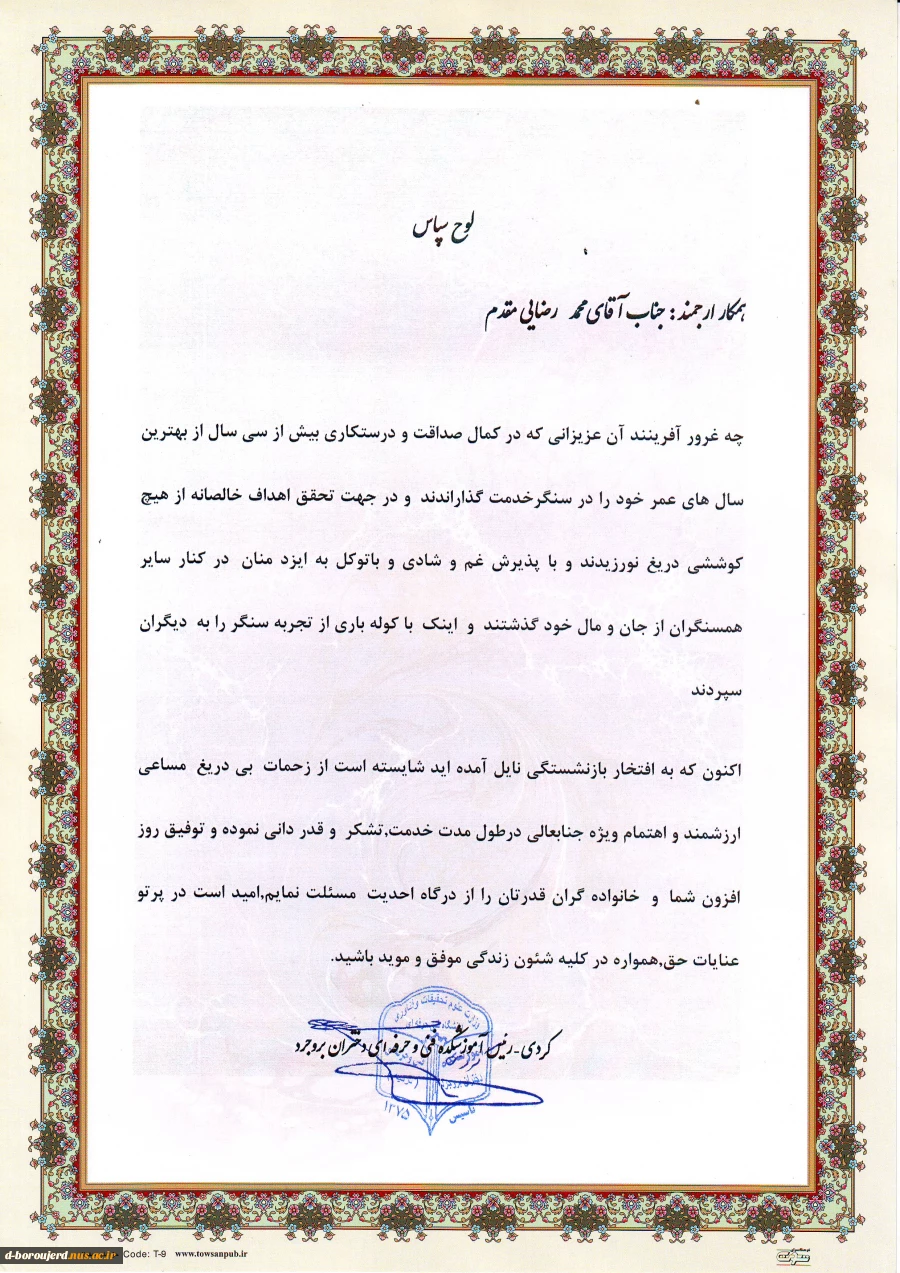 لوح سپاس
همکار ارجمند: جناب آقای محمد رضایی مقدم
چه غرور آفرینند آن عزیزانی که در کمال صداقت و درستکاری بیش از سی سال از بهترین
سال های عمر خود را در سنگرخدمت گذاراندند و در جهت تحقق اهداف خالصانه از هیچ
کوششی دریغ نورزیدند و با پذیرش غم و شادی و باتوکل به ایزد منان در کنار سایر
همسنگران از جان و مال خود گذشتند و اینک با کوله باری از تجربه سنگر را به دیگران
سپردند
اکنون که به افتخار بازنشستگی نایل آمده اید شایسته است از زحمات بی دریغ مساعی
ارزشمند و اهتمام ویژه جنابعالی درطول مدت خدمت,تشکر و قدر دانی نموده و توفیق روز
افزون شما و خانواده گران قدرتان را از درگاه احدیت مسئلت نمایم,امید است در پرتو
عنایات حق,همواره در کلیه شئون زندگی موفق و موید باشید.
وزارت علوم تحقیقات و فناوری
کردی-رئیس آموزشکده فنی و حرفه ای دختران بروجرد
تاسیس ۱۳۷۵
d-boroujerd.nus.ac.ir
Code: T-9 www.towsanpub.ir